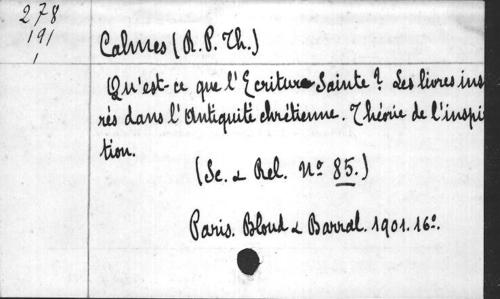 278
191
1
Calmes (R. P. Th.)
Qu'est-ce que l'Ecriture Sainte? Les livres ins
rés dans l'Antiquité chrétienne. Théorie de l'inspi
tion.
(Sc. & Rel. No 85.)
Paris. Bloud & Barral. 1901. 16o.